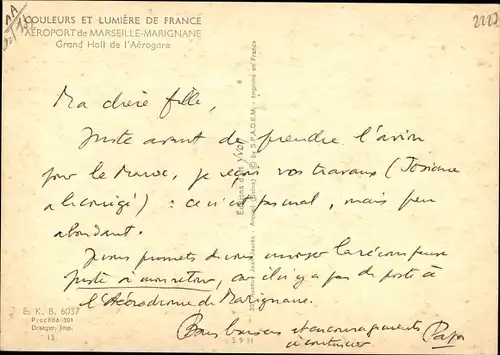 COULEURS ET LUMIÈRE DE FRANCE
AÉROPORT de MARSEILLE-MARIGNANE
Grand Hall de l'Aérogare
2223
Ma chère fille,
Juste avant de prendre l'avion
pour le Maroc, je reçois vos travaux (Josiane
a corrigé) : ce n'est pas mal, mais peu
abondant.
Je vous promets de vous envoyer la récompense
juste à mon retour, car il n'y a pas de poste à
l'Aérodrome de Marignane.
Bons baisers et encouragements
à continuer
Papa
E. K. B. 6037
Procédé 301
Draeger, Imp.
13
S 9 H
Editions d'art Yvon
by S.P.A.D.E.M. - Imprimé en France